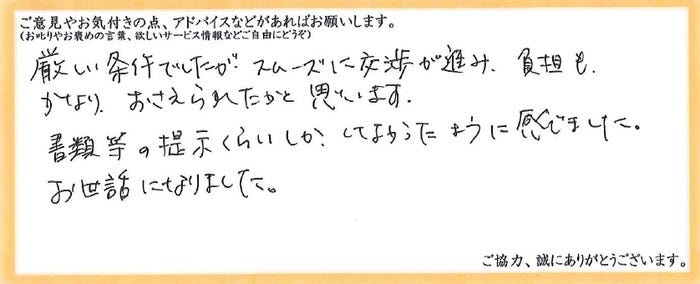 ご意見やお気付きの点、アドバイスなどがあればお願いします。
(お叱りやお褒めの言葉、欲しいサービス情報などご自由にどうぞ)
厳しい条件でしたが スムーズに交渉が進み、負担も、
かなり、おさえられたかと思います。
書類等の提示くらいしか、してなかったように感じました。
お世話になりました。
ご協力、誠にありがとうございます。